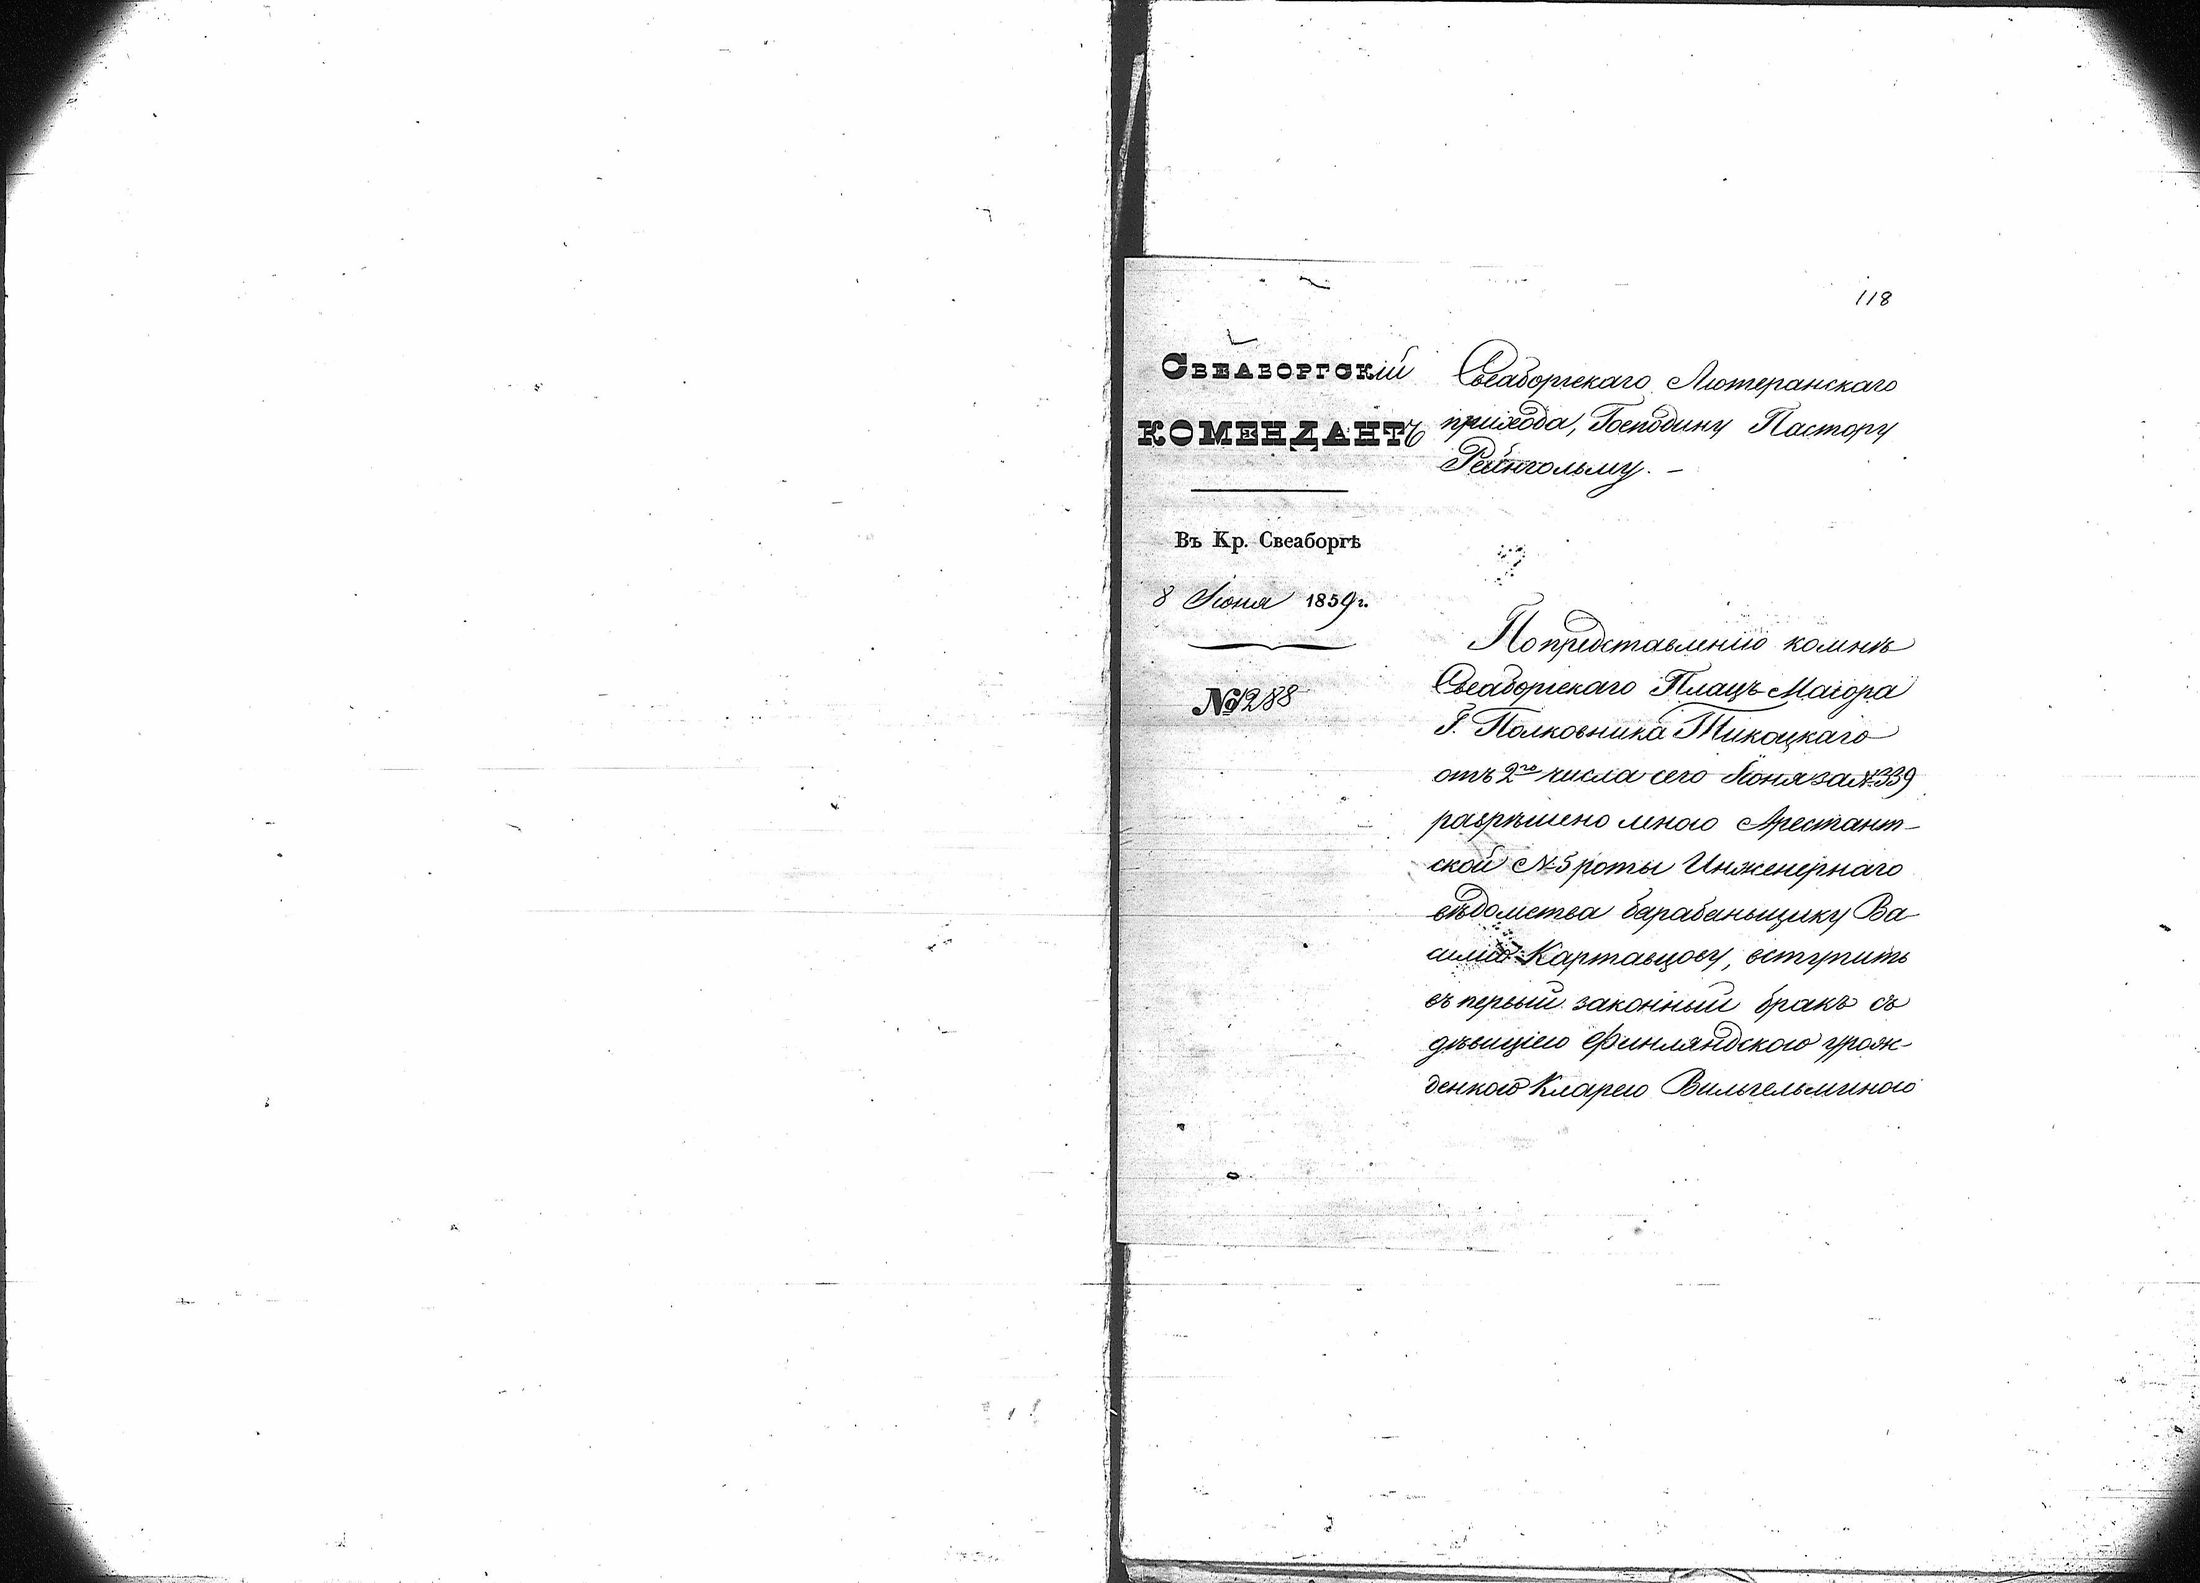 118
Свеаборгскій
КОМЕНДАНТЪ
Въ Кр. Свеаборгѣ
8 Іюня 1859 г.
№ 1288
Свеаборгскаго Лютеранскаго
прихода, Господину Пастору
Рейнгольму. –
По представленію ко мнѣ
Свеаборгскаго Плацъ-Маіора
Г. Полковника Тикоцкаго
отъ 2го числа сего Іюня за № 339
разрѣшено мною Арестант-
ской № 5 роты Инженернаго
вѣдомства барабанщику Ва
силію Картавцову, вступить
въ первый законный бракъ съ
дѣвицею Финляндскою урож-
денкою Кларею Вильгельминою